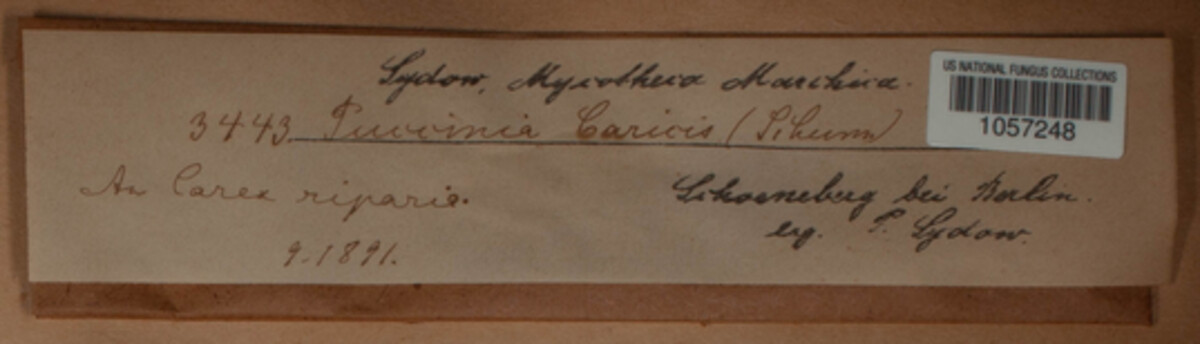 Sydow, Mycotheca Marchica.
US NATIONAL FUNGUS COLLECTIONS
1057248
3443 Puccinia Caricis (Schum)
An Carex riparia.
Schoeneberg bei Berlin.
9.1891.
leg. P. Sydow.